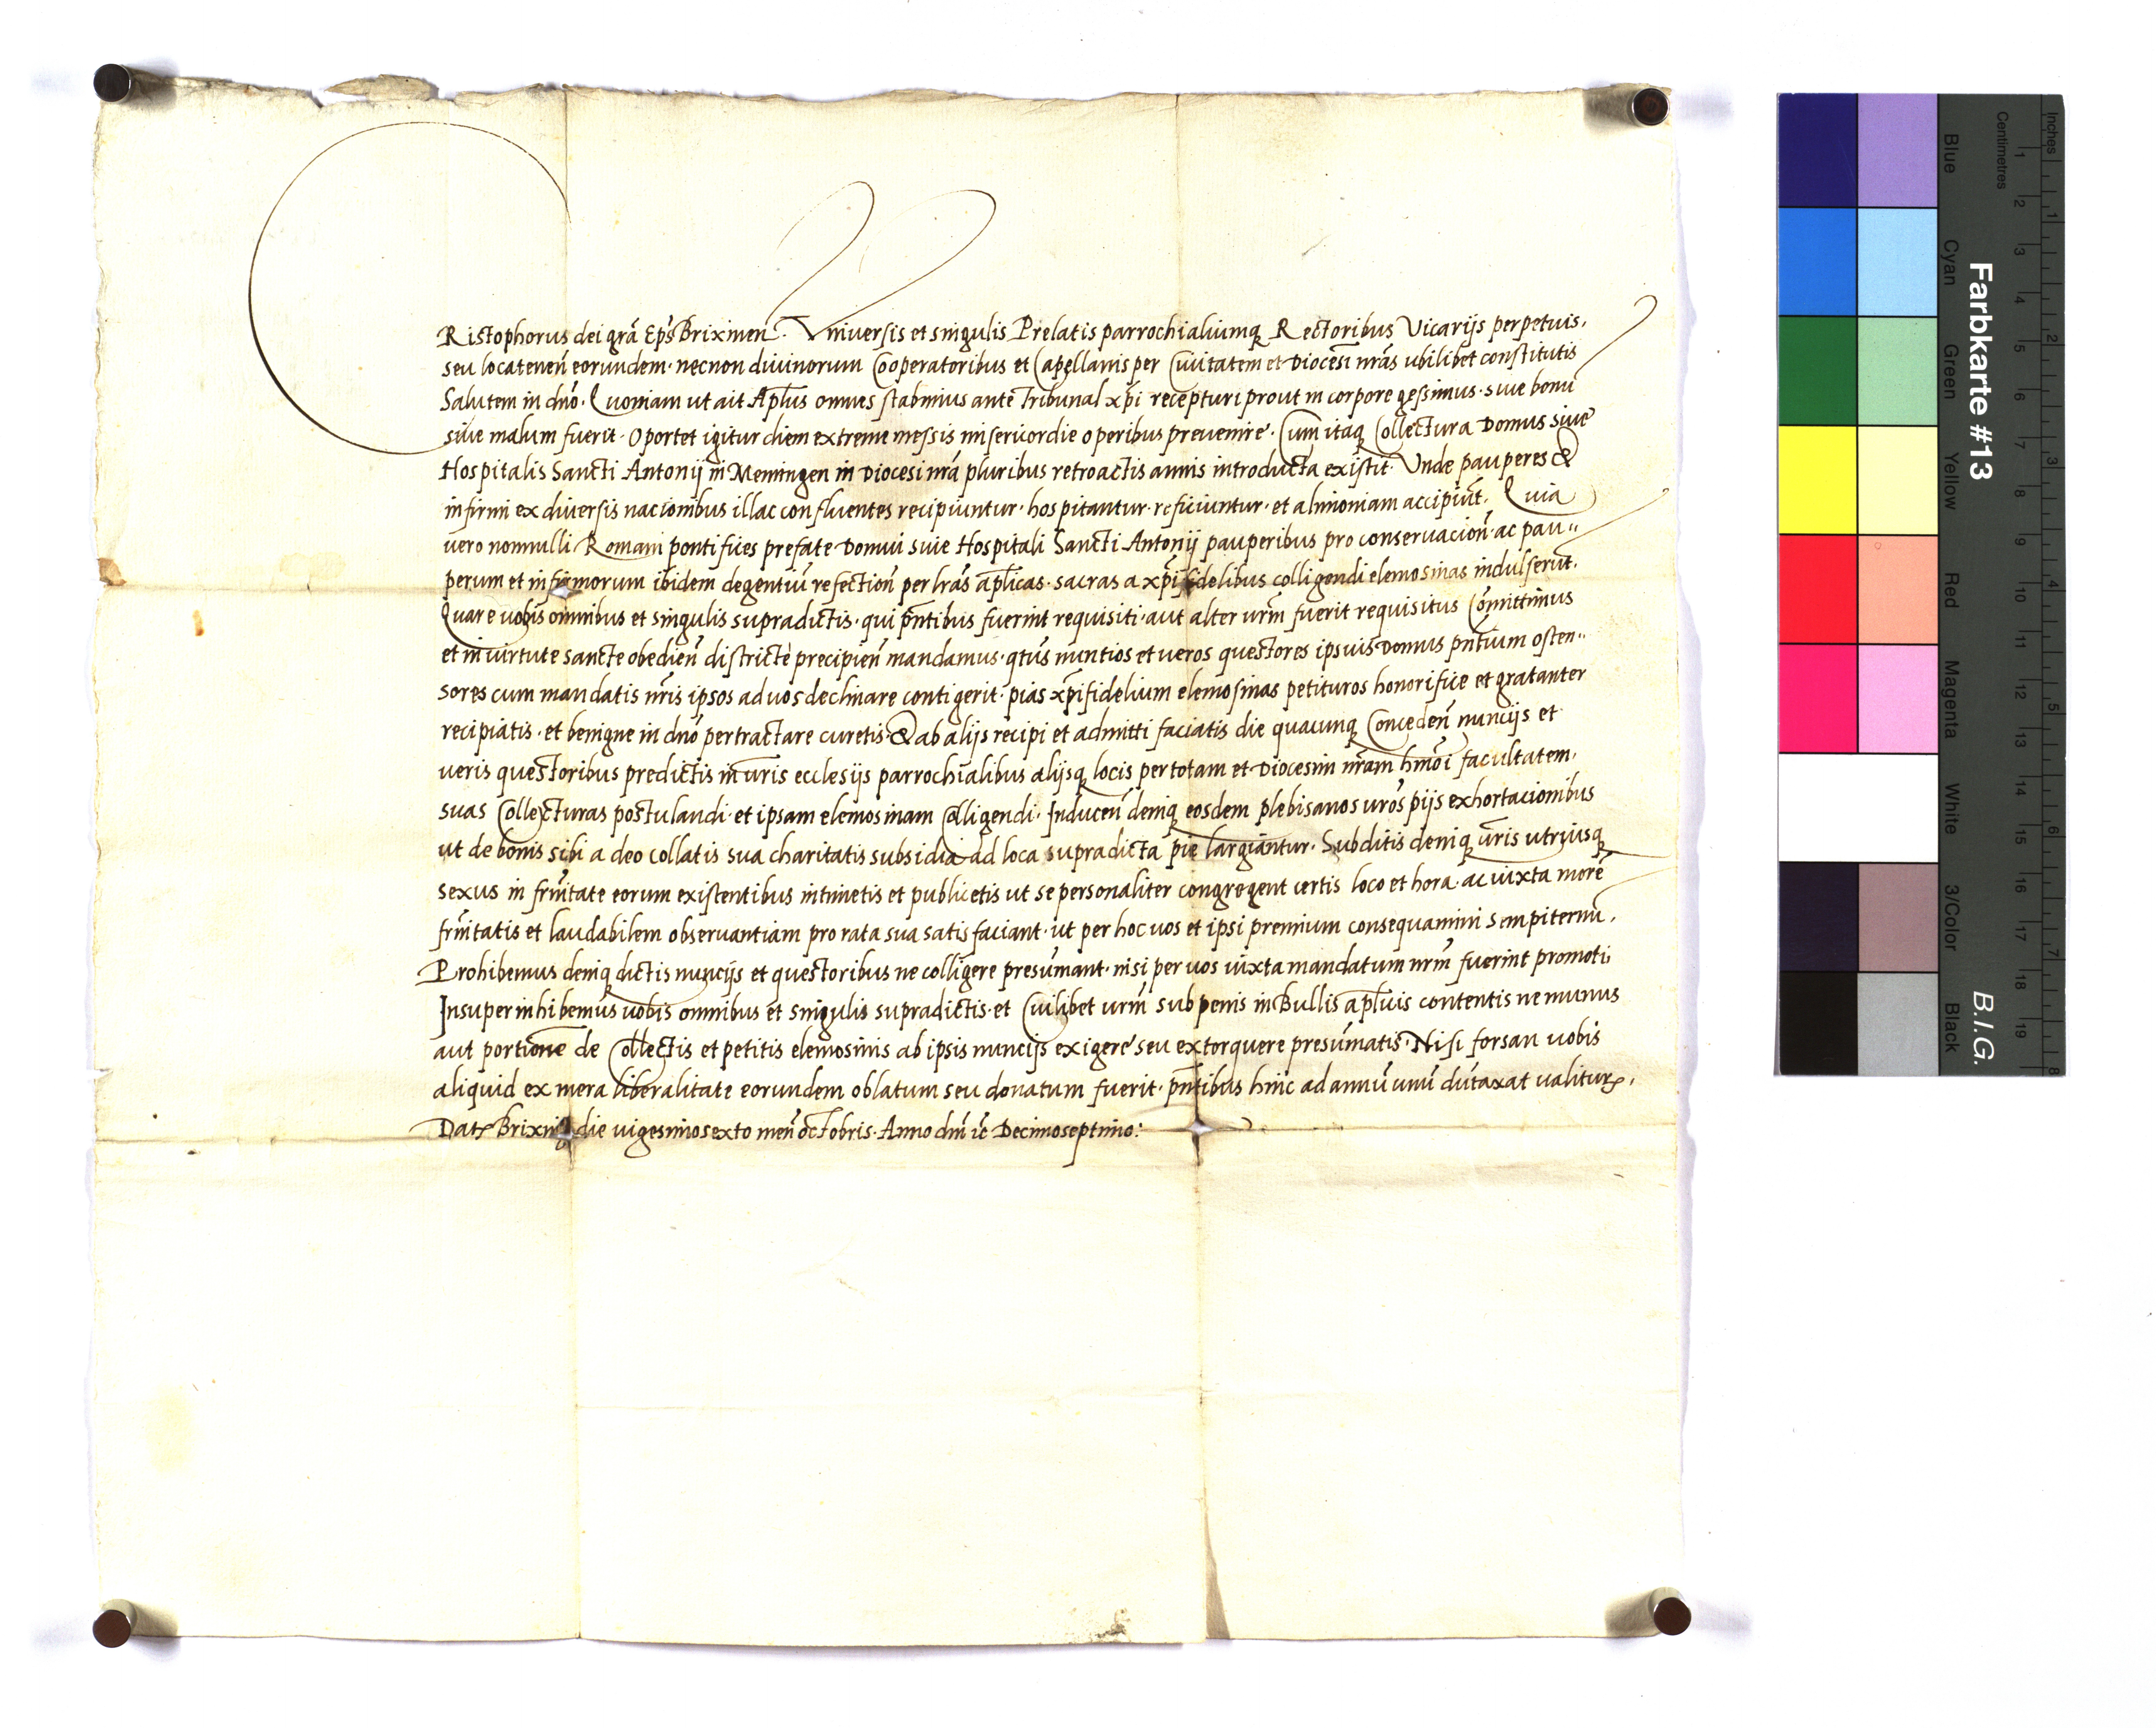 CRistophorus dei grã Ep̃s Brixinen̄. Vniuersis et singulis Prelatis parrochialiumq Rectoribus Vicarijs perpetuis,
seu locatenen̄ eorundem· necnon diuinorum Cooperatoribus et Capellanis per Ciuitatem et Diocesī nrãs ubilibet constitutis
Salutem in dño. Quoniam ut ait Apl̃us omnes stabimus ante Tribunal xp̃i recepturi prout in corpore gessimus· siue bonū
siue malum fuerit· Oportet igitur diem extreme messis misericordie operibus preuenire. Cum itaq Collectura Domus siue
Hospitalis Sancti Antonij in Memingen in Diocesi nrã pluribus retroactis annis introducta existit. Vnde pauperes &
infirmi ex diuersis nacionibus illac confluentes recipiuntur· hospitantur· reficiuntur· et alimoniam accipiūt. Quia
uero nonnulli Romani pontifices prefate Domui siue Hospitali Sancti Antonij pauperibus pro conseruacion̄ ac pau=
perum et infirmorum ibidem degentiū refection̄ per lrãs aplicas· sacras a xp̃ifidelibus colligendi elemosinas indulserūt.
Quare uobis omnibus et singulis supradictis· qui pñtibus fuerint requisiti· aut alter urm̃ fuerit requisitus Cōmittimus
et in uirtute sancte obedien̄ districte precipien̄ mandamus· qtũs nuntios et ueros questores ipsius Domus pñtium osten=
sores cum mandatis nrĩs ipsos ad uos declinare contigerit· pias xp̃ifidelium elemosinas petituros honorifice et gratanter
recipiatis· et benigne in dño pertractare curetis· & ab alijs recipi et admitti faciatis die quacunq Conceden̄ nuncijs et
ueris questoribus predictis in urĩs ecclesijs parrochialibus alijsq locis per totam et Diocesim nrãm hmõi facultatem,
suas Collecturas postulandi· et ipsam elemosinam Colligendi. Inducen̄ deniq eosdem plebisanos urõs pijs exhortacionibus
ut de bonis sibi a deo collatis sua charitatis subsidia ad loca supradicta pie largiantur. Subditis deniq urĩs utriusq
sexus in frñitate eorum existentibus intimetis et publicetis ut se personaliter congregent certis loco et hora· ac iuxta morē
frñitatis et laudabilem obseruantiam pro rata sua satisfaciant· ut per hoc uos et ipsi premium consequamini sempiternū.
Prohibemus deniq dictis nuncijs et questoribus ne colligere presumant· nisi per uos iuxta mandatum nrm̃ fuerint promoti.
Insuper inhibemus uobis omnibus et singulis supradictis· et Cuilibet urm̃ sub penis in Bullis aplicis contentis ne munus
aut portione de Collectis et petitis elemosinis ab ipsis nuncijs exigere seu extorquere presumatis. Nisi forsan uobis
aliquid ex mera liberalitate eorundem oblatum seu donatum fuerit· pñtibus hinc ad annū unū dūtaxat ualitur.
Dat Brixine die uigesimosexto men̄ octobris· Anno dñi ic̄ Decimoseptimo:
Farbkarte #13
B.I.G.
Inches
Centimetres
Blue
Cyan
Green
Yellow
Red
Magenta
White
3/Color
Black
1 2 3 4 5 6 7 8 9 10 11 12 13 14 15 16 17 18 19
1 2 3 4 5 6 7 8